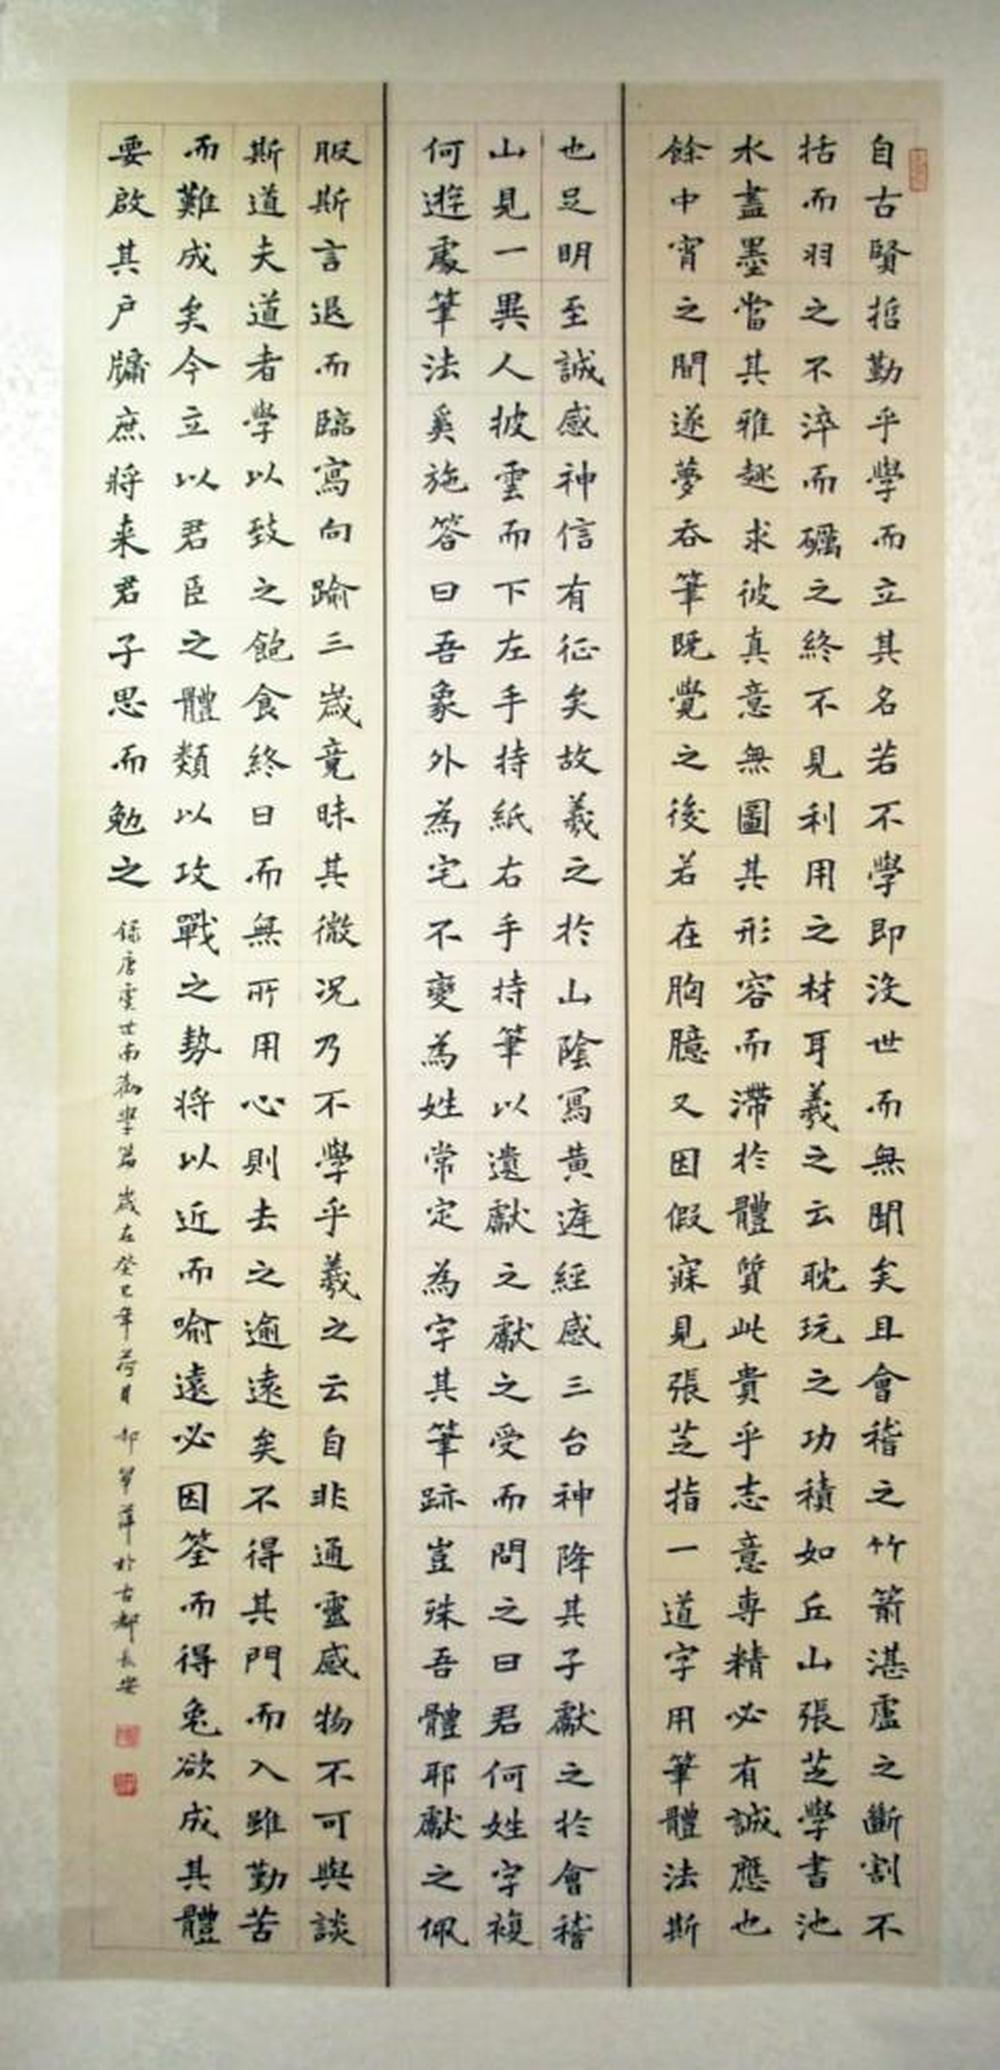 自古賢哲勤乎學而立其名若不學即沒世而無聞矣且會稽之竹箭湛盧之斷割不
括而羽之不淬而礪之終不見利用之材耳羲之云耽玩之功積如丘山張芝學書池
水盡墨當其雅趣求彼真意無圖其形容而滯於體質此貴乎志意專精必有誠應也
餘中宵之間遂夢吞筆既覺之後若在胸臆又因假寐見張芝指一道字用筆體法斯
也足明至誠感神信有征矣故羲之於山陰寫黃庭經感三台神降其子獻之於會稽
山見一異人披雲而下左手持紙右手持筆以遺獻之獻之受而問之曰君何姓字複
何遊處筆法奚施答曰吾象外為宅不變為姓常定為字其筆跡豈殊吾體耶獻之佩
服斯言退而臨寫向踰三歲竟昧其微況乃不學乎羲之云自非通靈感物不可與談
斯道夫道者學以致之飽食終日而無所用心則去之逾遠矣不得其門而入雖勤苦
而難成矣今立以君臣之體類以攻戰之勢將以近而喻遠必因筌而得兔欲成其體
要啟其户牖庶將来君子思而勉之
錄唐虞世南勸學篇歲在癸巳年荷月郝翠萍於古都長安